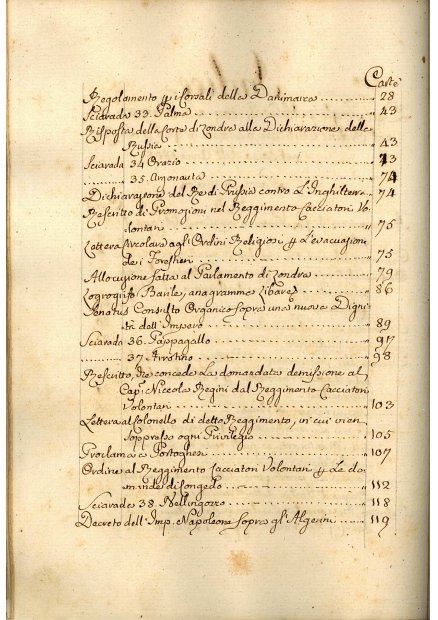 Carte
Regolamento p i Corsali della Danimarca .......... 28
Sciarada 33. Palma .......... 43
Risposta della Corte di Londra alla Dichiarazione della
Russia .......... 43
Sciarada 34 Orazio .......... 73
......... 35. Argonauta .......... 74
Dichiarazione del Re di Prussia contro L'Inghilterra 74
Rescritto di Promozioni nel Reggimento Cacciatori Vo
lontari .......... 75
Lettera Circolare agli Ordini Religiosi p L'evacuazione
dei Forestieri .......... 75
Allocuzione fatta al Parlamento di Londra .......... 79
Logogrifo Barile, anagramme Libare .......... 86
Senatus Consulto Organico sopra una nuova Digni
tà dell'Impero .......... 89
Sciarada 36. Pappagallo .......... 97
......... 37 Arrosino .......... 98
Rescritto, Che concede La domandata demissione al
Cap. Niccola Regini dal Reggimento Cacciatori
Volontari .......... 103
Lettera al Colonello di detto Reggimento, in cui vien
soppresso ogni Privilegio .......... 105
Proclama a Portoghesi .......... 107
Ordine al Reggimento Cacciatori Volontari p Le do
mande di Congedo .......... 112
Sciarade 38. .......... 118
Decreto dell'Imp. Napoleone sopra gl'Algerini .......... 119